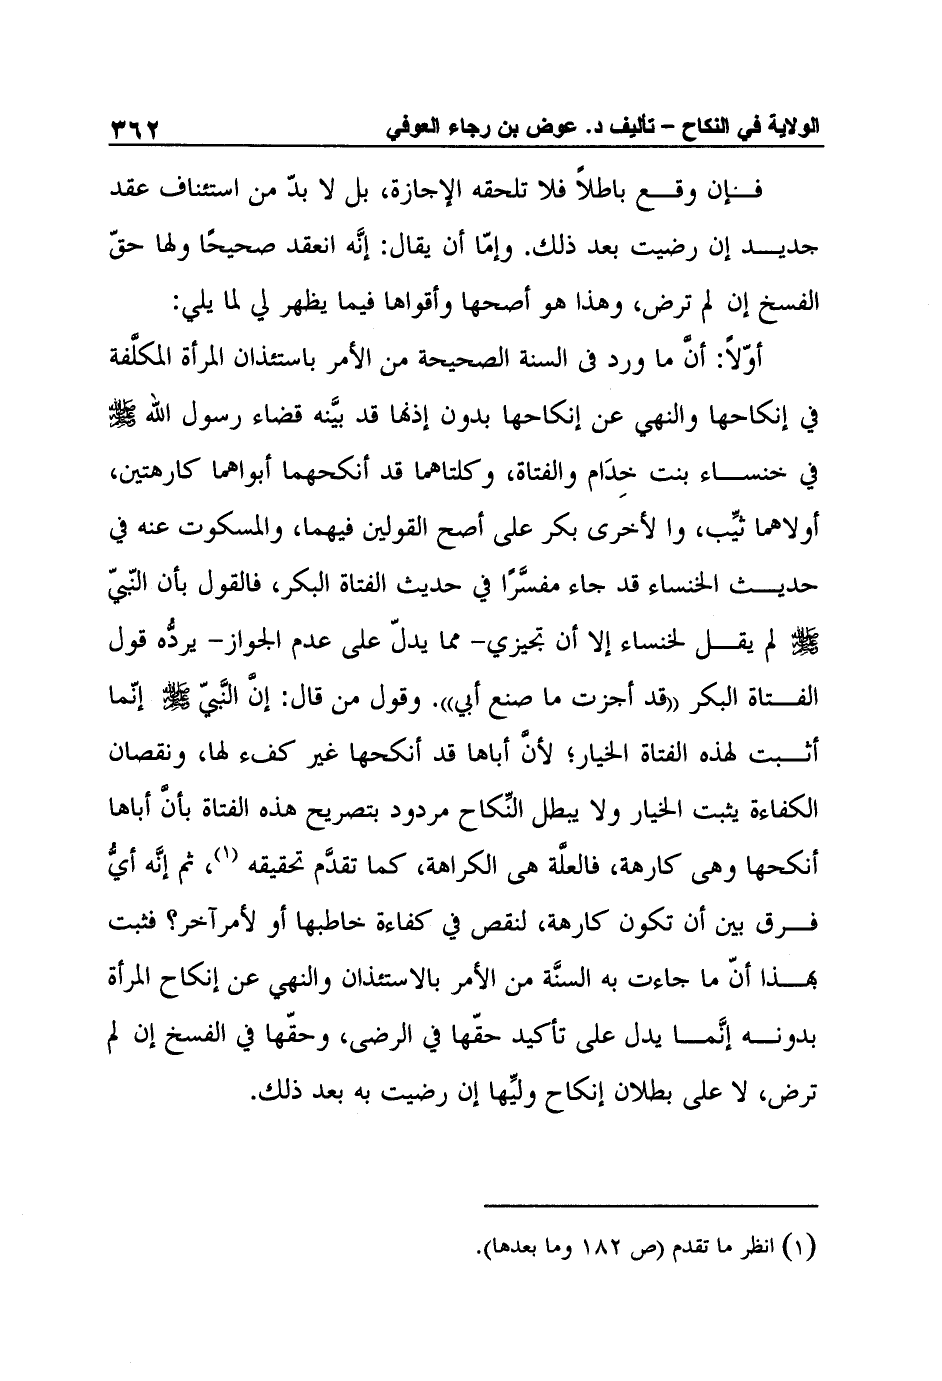 الولاية في النكاح – تأليف د. عوض بن رجاء العوفي ٣٦٢
فـإن وقـع باطلاً فلا تلحقه الإجازة، بل لا بدّ من استئناف عقد
جديـد إن رضيت بعد ذلك. وإمّا أن يقال: إنَّه انعقد صحيحًا ولها حقّ
الفسخ إن لم ترض، وهذا هو أصحها وأقواها فيما يظهر لي لما يلي:
أوّلاً: أنَّ ما ورد فى السنة الصحيحة من الأمر باستئذان المرأة المكلَّفة
في إنكاحها والنهي عن إنكاحها بدون إذنها قد بيَّنه قضاء رسول الله ﷺ
في خنسـاء بنت خِدَام والفتاة، وكلتاهما قد أنكحهما أبواهما كارهتين،
أولاهما ثيِّب، وا لأخرى بكر على أصح القولين فيهما، والمسكوت عنه في
حديـث الخنساء قد جاء مفسَّرًا في حديث الفتاة البكر، فالقول بأن النّبيّ
ﷺ لم يقـل لخنساء إلا أن تجيزي– مما يدلّ على عدم الجواز– يردُّه قول
الفـتاة البكر ((قد أجزت ما صنع أبي)). وقول من قال: إنَّ النَّبيّ ﷺ إنّما
أثـبت لهذه الفتاة الخيار؛ لأنَّ أباها قد أنكحها غير كفء لها، ونقصان
الكفاءة يثبت الخيار ولا يبطل النِّكاح مردود بتصريح هذه الفتاة بأنَّ أباها
أنكحها وهى كارهة، فالعلَّة هى الكراهة، كما تقدَّم تحقيقه (١)، ثم إنَّه أيُّ
فـرق بين أن تكون كارهة، لنقص في كفاءة خاطبها أو لأمرآخر؟ فثبت
بهـذا أنّ ما جاءت به السنَّة من الأمر بالاستئذان والنهي عن إنكاح المرأة
بدونـه إنَّمـا يدل على تأكيد حقّها في الرضى، وحقّها في الفسخ إن لم
ترض، لا على بطلان إنكاح وليِّها إن رضيت به بعد ذلك.
(١) انظر ما تقدم (ص ١٨٢ وما بعدها).